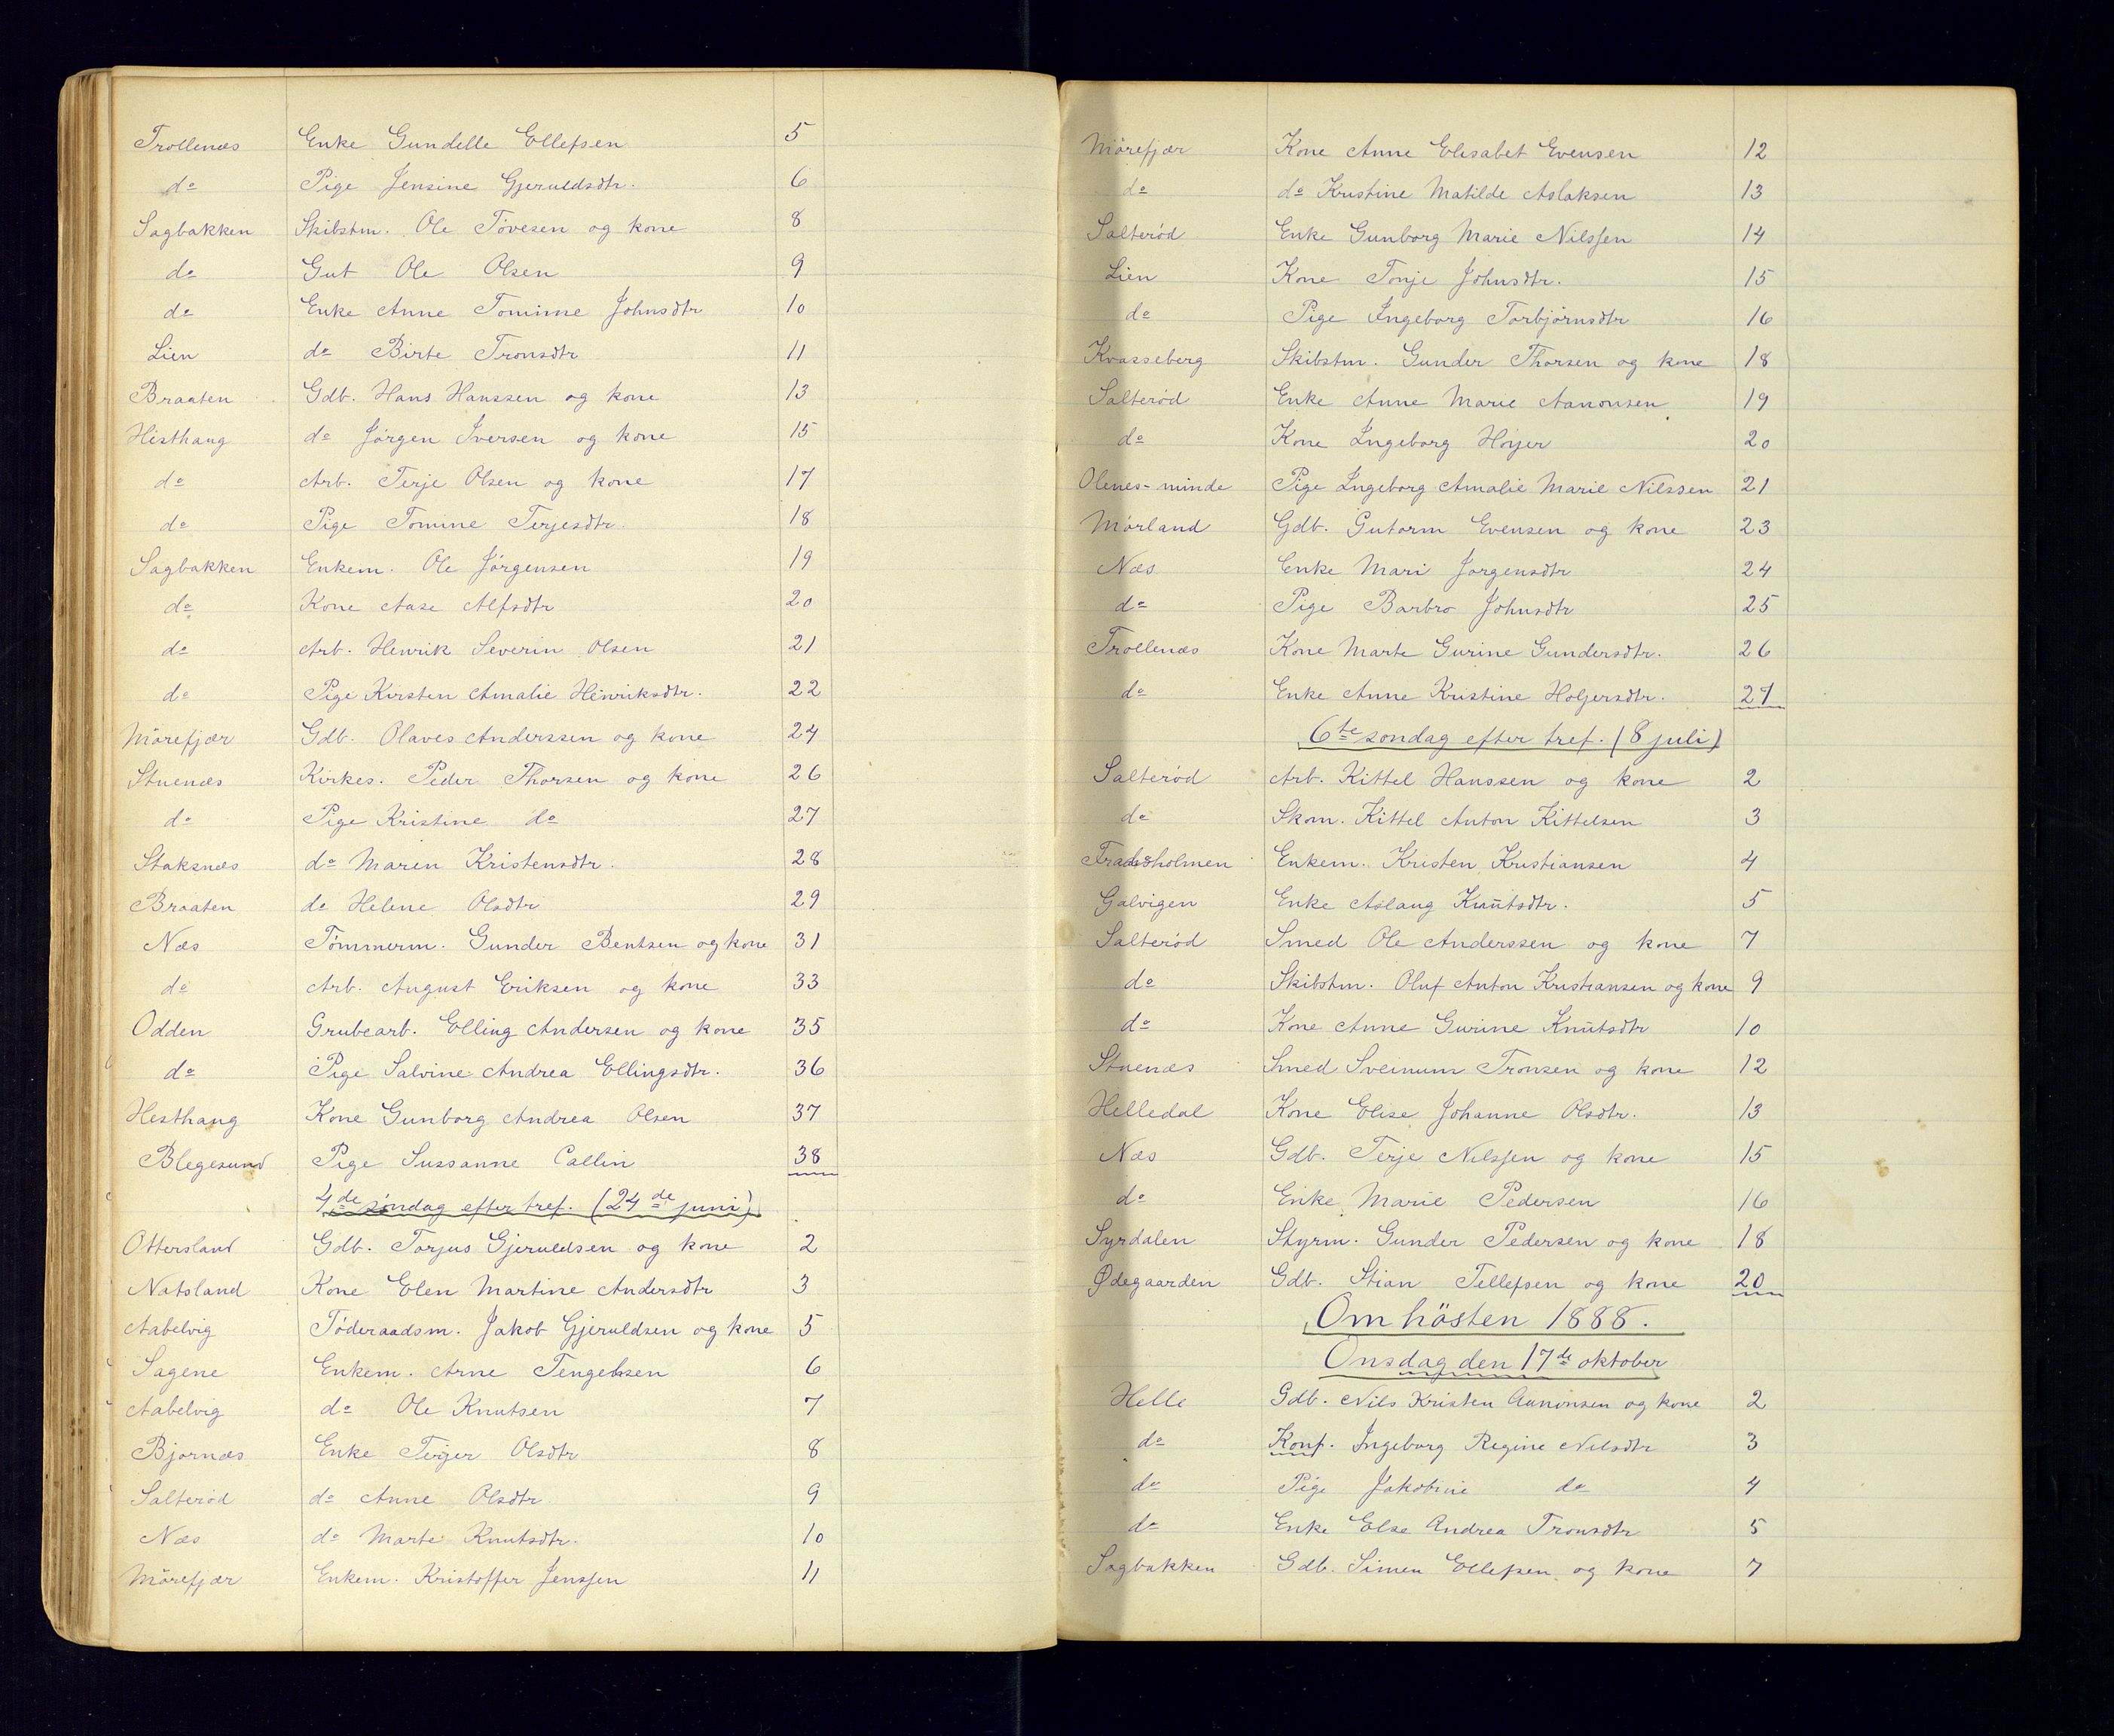 Trollenæs Enke Gundelle Ellefsen 5
do Pige Jensine Gjeruldsdtr. 6
Sagbakken Skibstm. Ole Tóvesen og kone 8
do Gut Ole Olsen 9
do Enke Anne Tomine Johnsdtr 10
Lien do Birte Tronsdtr 11
Braaten Gdb. Hans Hanssen og kone 13
Histhaug do Jórgen Iversen og kone 15
do Arb. Terje Olsen og kone 17
do Pige Tomine Terjesdtr. 18
Sagbakken Enkem. Ole Jórgensen 19
do Kone Aase Alfsdtr 20
do Arb. Henrik Severin Olsen 21
do Pige Kirsten Amalie Henriksdtr. 22
Mórefjær Gdb. Olaves Anderssen og kone 24
Stuenæs Kirkes. Peder Thorsen og kone 26
do Pige Kristine do 27
Staksnæs do Maren Kristensdtr. 28
Braaten do Helene Olsdtr 29
Næs Tómmerm. Gunder Bentsen og kone 31
do Arb. August Eriksen og kone 33
Odden Grubearb. Elling Andersen og kone 35
do Pige Salvine Andrea Ellingsdtr. 36
Hesthaug Kone Gunborg Andrea Olsen 37
Blegesund Pige Sussanne Callin 38
4de sóndag efter tref. (24de juni)
Ottersland Gdb. Torjus Gjeruldsen og kone 2
Natsland Kone Elen Martine Andersdtr 3
Aabelvig Tóderaadsm. Jakob Gjeruldsen og kone 5
Sagene Enkem. Arne Tengelsen 6
Aabelvig do Ole Knutsen 7
Bjornæs Enke Terjer Olsdtr 8
Salteród do Anne Olsdtr. 9
Næs do Marte Knutsdtr. 10
Mórefjær Enkem. Kristoffer Jenssen 11
Mórefjær Kone Anne Elisabet Evensen 12
do do Kristine Matilde Aslaksen 13
Salteród Enke Gunborg Marie Nilssen 14
Lien Kone Tonje Johnsdtr. 15
do Pige Ingeborg Torbjórnsdtr 16
Kvasseberg Skibstm. Gunder Thorsen og kone 18
Salteród Enke Anne Marie Aanonsen 19
do Kone Ingeborg Hójer 20
Olenes-minde Pige Ingeborg Amalie Marie Nilssen 21
Mórland Gdb. Gutorm Evensen og kone 23
Næs Enke Mari Jorgensdtr 24
do Pige Barbro Johnsdtr 25
Trollenæs Kone Marte Gurine Gundersdtr. 26
do Enke Anne Kristine Holjersdtr. 27
6te sondag efter tref. (8 juli)
Salteród Arb. Kittel Hanssen og kone 2
do Skom. Kittel Anton Kittelsen 3
Enkem. Kristen Kristiansen 4
Galvigen Enke Aslaug Knutsdtr. 5
Salteród Smed Ole Anderssen og kone 7
do Skibstm. Oluf Anton Kristiansen og kone 9
do Kone Anne Gurine Knutsdtr 10
Stuenæs Smed Sveinum Tronsen og kone 12
Helledal Kone Elise Johanne Olsdtr. 13
Næs Gdb. Terje Nilssen og kone 15
do Enke Marie Pedersen 16
Syrdalen Styrm. Gunder Pedersen og kone 18
Ødegaarden Gdb. Stian Tellefsen og kone 20
Om hösten 1888.
Onsdag den 17de oktober
Helle Gdb. Nils Kristen Aanonsen og kone 2
do Konf. Ingeborg Regine Nilsdtr 3
do Pige Jakobine do 4
do Enke Else Andrea Tronsdtr 5
Sagbakken Gdb. Simen Ellefsen og kone 7